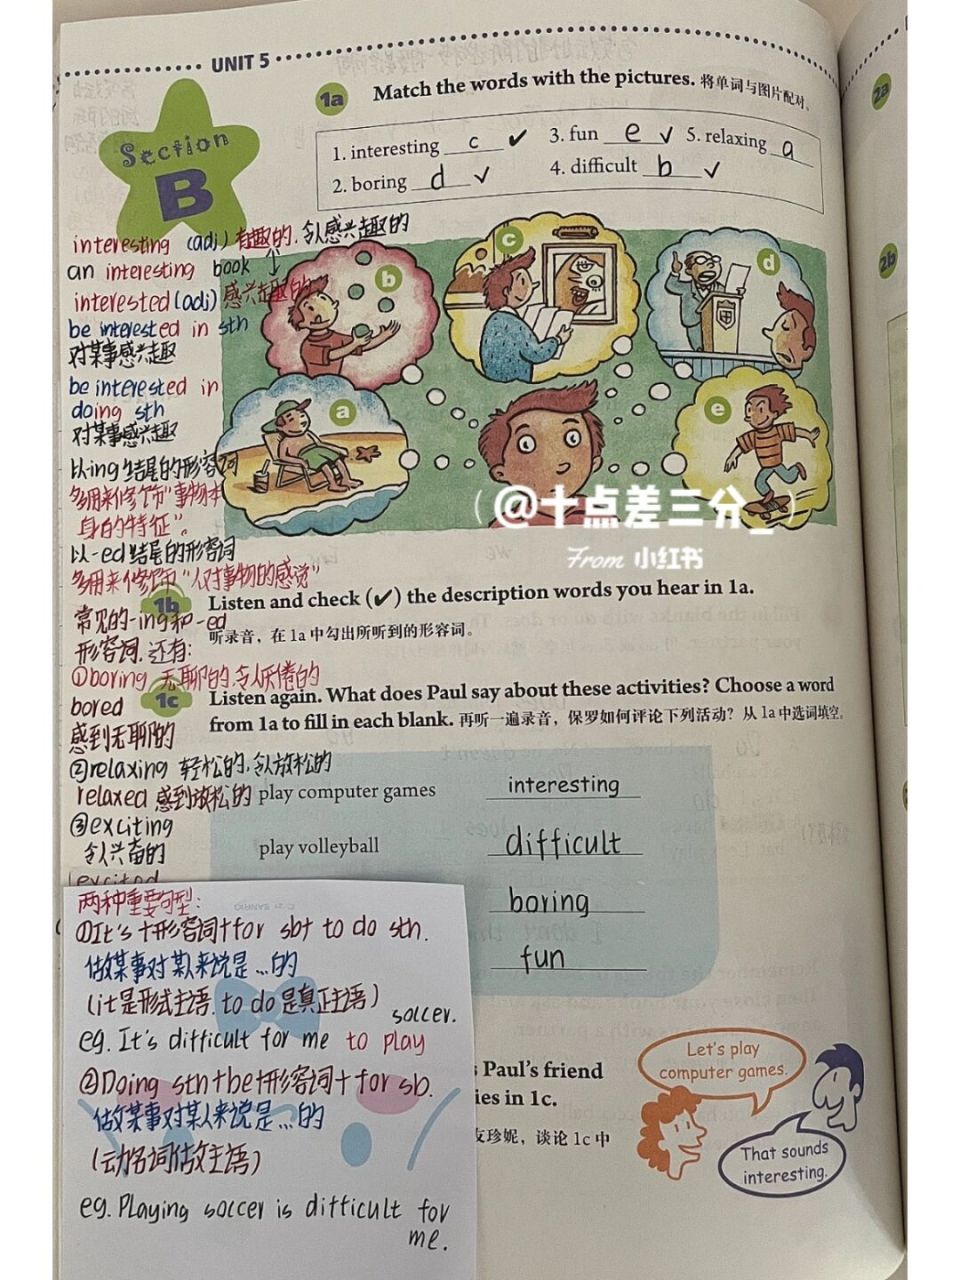 UNIT 5
Section
B
1a Match the words with the pictures. 将单词与图片配对。
1. interesting c ✔ 3. fun e ✓ 5. relaxing a
2. boring d ✓ 4. difficult b ✓
interesting (adj) 有趣的. 令人感兴趣的
an interesting book
interested (adj) 感兴趣的
be interested in sth
对某事感兴趣
be interested in
doing sth
对某事感兴趣
以ing结尾的形容词
多用来修饰"事物本
身的特征"。
以-ed结尾的形容词
多用来修饰"人对事物的感觉"
常见的-ing和-ed
形容词.还有:
①boring 无聊的.令人厌倦的
bored
感到无聊的
②relaxing 轻松的.令人放松的
relaxed 感到放松的
③exciting
令人兴奋的
excited
b
c
d
a
e
(@十点差三分_)
From 小红书
1b Listen and check (✔) the description words you hear in 1a.
听录音，在 1a 中勾出所听到的形容词。
1c Listen again. What does Paul say about these activities? Choose a word
from 1a to fill in each blank. 再听一遍录音，保罗如何评论下列活动？从 1a 中选词填空。
play computer games interesting
play volleyball difficult
boring
fun
两种重要句型:
①It's+形容词+for sb+ to do sth.
做某事对某人来说是...的
(it是形式主语. to do 是真正主语)
eg. It's difficult for me to play soccer.
②Doing sth+be+形容词+for sb.
做某事对某人来说是...的
(动名词做主语)
eg. Playing soccer is difficult for
me.
Paul's friend
ies in 1c.
友珍妮，谈论 1c 中
Let's play
computer games.
That sounds
interesting.
2a
2b